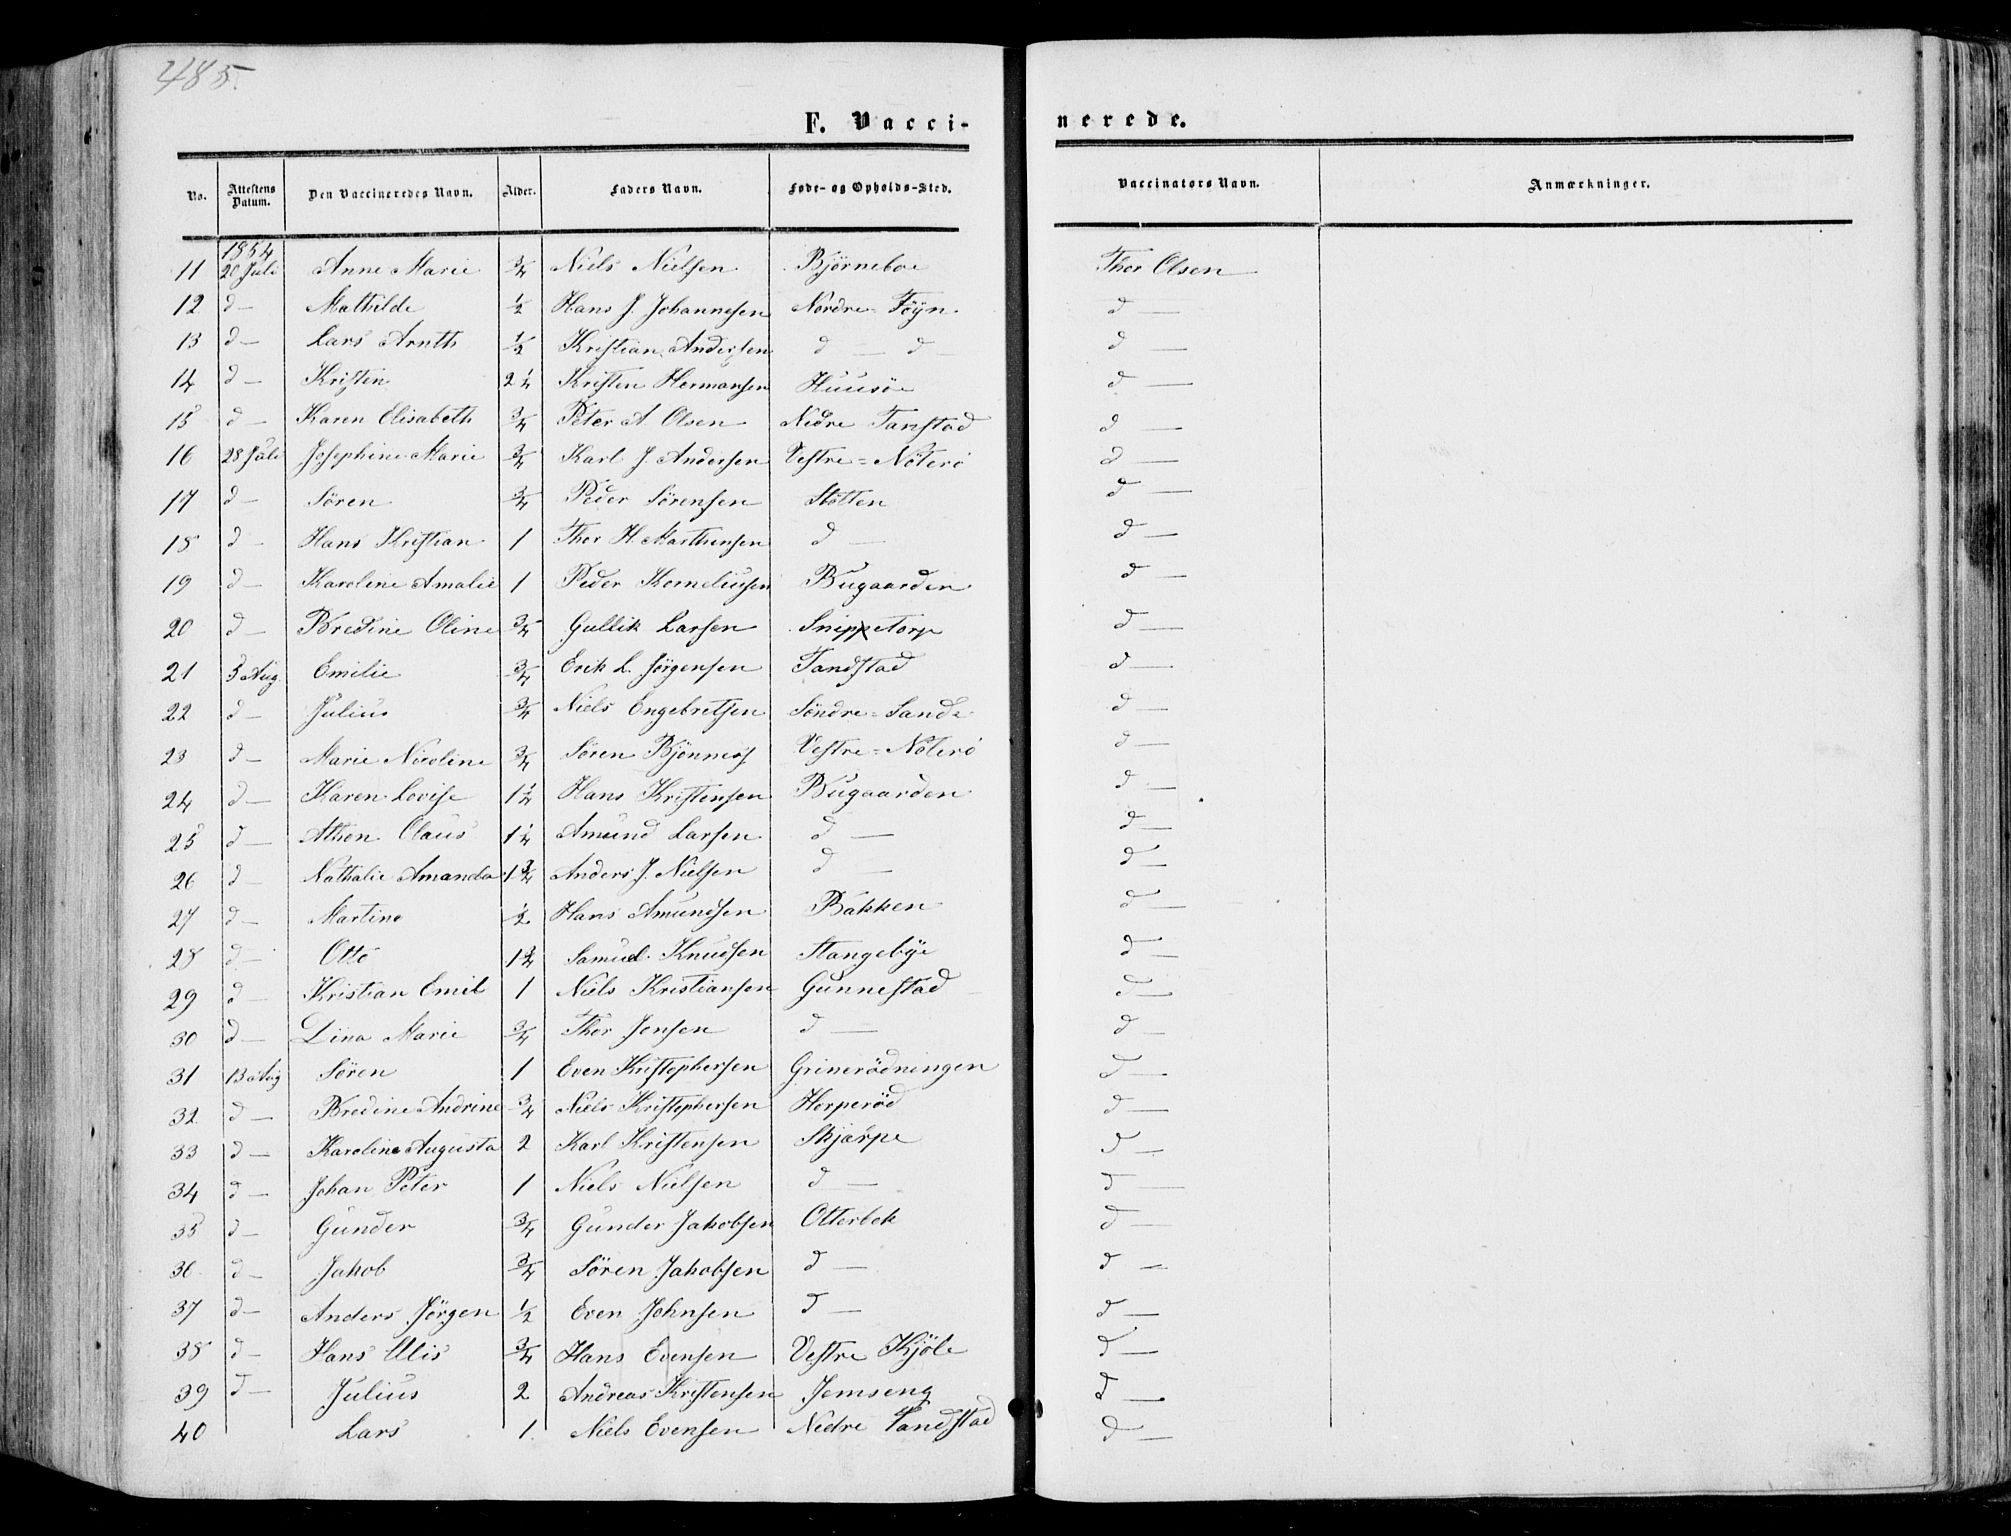 485.
F. Vacci- nerede.
No. Attestens Datum. Den Vaccineredes Navn. Alder. Faders Navn. Føde- og Opholds-Sted. Vaccinators Navn. Anmærkninger.
1854
11 20 Juli Anne Marie 3/4 Niels Nielsen Bjørneboe Thor Olsen
12 d— Mathilde 1/2 Hans J. Johannesen Nordre-Föyn d—
13 d— Lars Arnth 1/2 Kristian Andersen d— d— d—
14 d— Kristin 2 1/4 Kristen Hermansen Huusøe d—
15 d— Karen Elisabeth 3/4 Peter A. Olsen Nedre Tanstad d—
16 28 Juli Josephine Marie 3/4 Karl J. Andersen Vestre-Nöterö d—
17 d— Sören 3/4 Peder Sörensen Stotten d—
18 d— Hans Kristian 1 Thor H. Marthinsen d— d—
19 d— Karoline Amalie 1 Peder Korneliusen Bugaarden d—
20 d— Bredine Oline 3/4 Gullik Larsen Snippetorp d—
21 5 Aug Emilie 3/4 Erik L. Jörgensen Tandstad d—
22 d— Julius 3/4 Niels Engebretsen Söndre-Sande d—
23 d— Marie Nicoline 3/4 Sören Bjönnes Vestre-Nöterö d—
24 d— Karen Lovise 1 1/4 Hans Kristensen Bugaarden d—
25 d— Athon Claus 1 1/4 Amund Larsen d— d—
26 d— Nathalie Amanda 1 3/4 Anders J. Nielsen d— d—
27 d— Martine 1/2 Hans Amundsen Bakken d—
28 d— Otto 1 3/4 Samuel Knudsen Stangebye d—
29 d— Kristian Emil 1 Niels Kristiansen Gunnestad d—
30 d— Lina Marie 3/4 Thor Jensen d— d—
31 13 Aug Sören 1 Even Kristophersen Grinerödningen d—
32 d— Bredine Andrine 3/4 Niels Kristophersen Herperöd d—
33 d— Karoline Augusta 2 Karl Kristensen Skjærpe d—
34 d— Johan Peter 1 Niels Nielsen d— d—
35 d— Gunder 3/4 Gunder Jakobsen Otterbek d—
36 d— Jakob 3/4 Sören Jakobsen d— d—
37 d— Anders Jörgen 1/2 Even Johnsen d— d—
38 d— Hans Ulis 3/4 Hans Evensen Vestre Kjöle d—
39 d— Julius 2 Andreas Kristensen Jemseng d—
40 Lars 1 Niels Evensen Nedre Tandstad d—